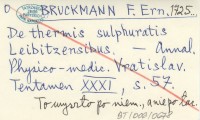 BRUCKMANN F. Ern, 1725.
De thermis sulphuratis
Leibitzensibus. — Annal.
Physico-medic. Vratislav.
Tentamen XXXI, s. 57.
To wyszło po niem, a nie po łac.
BT/000/0628